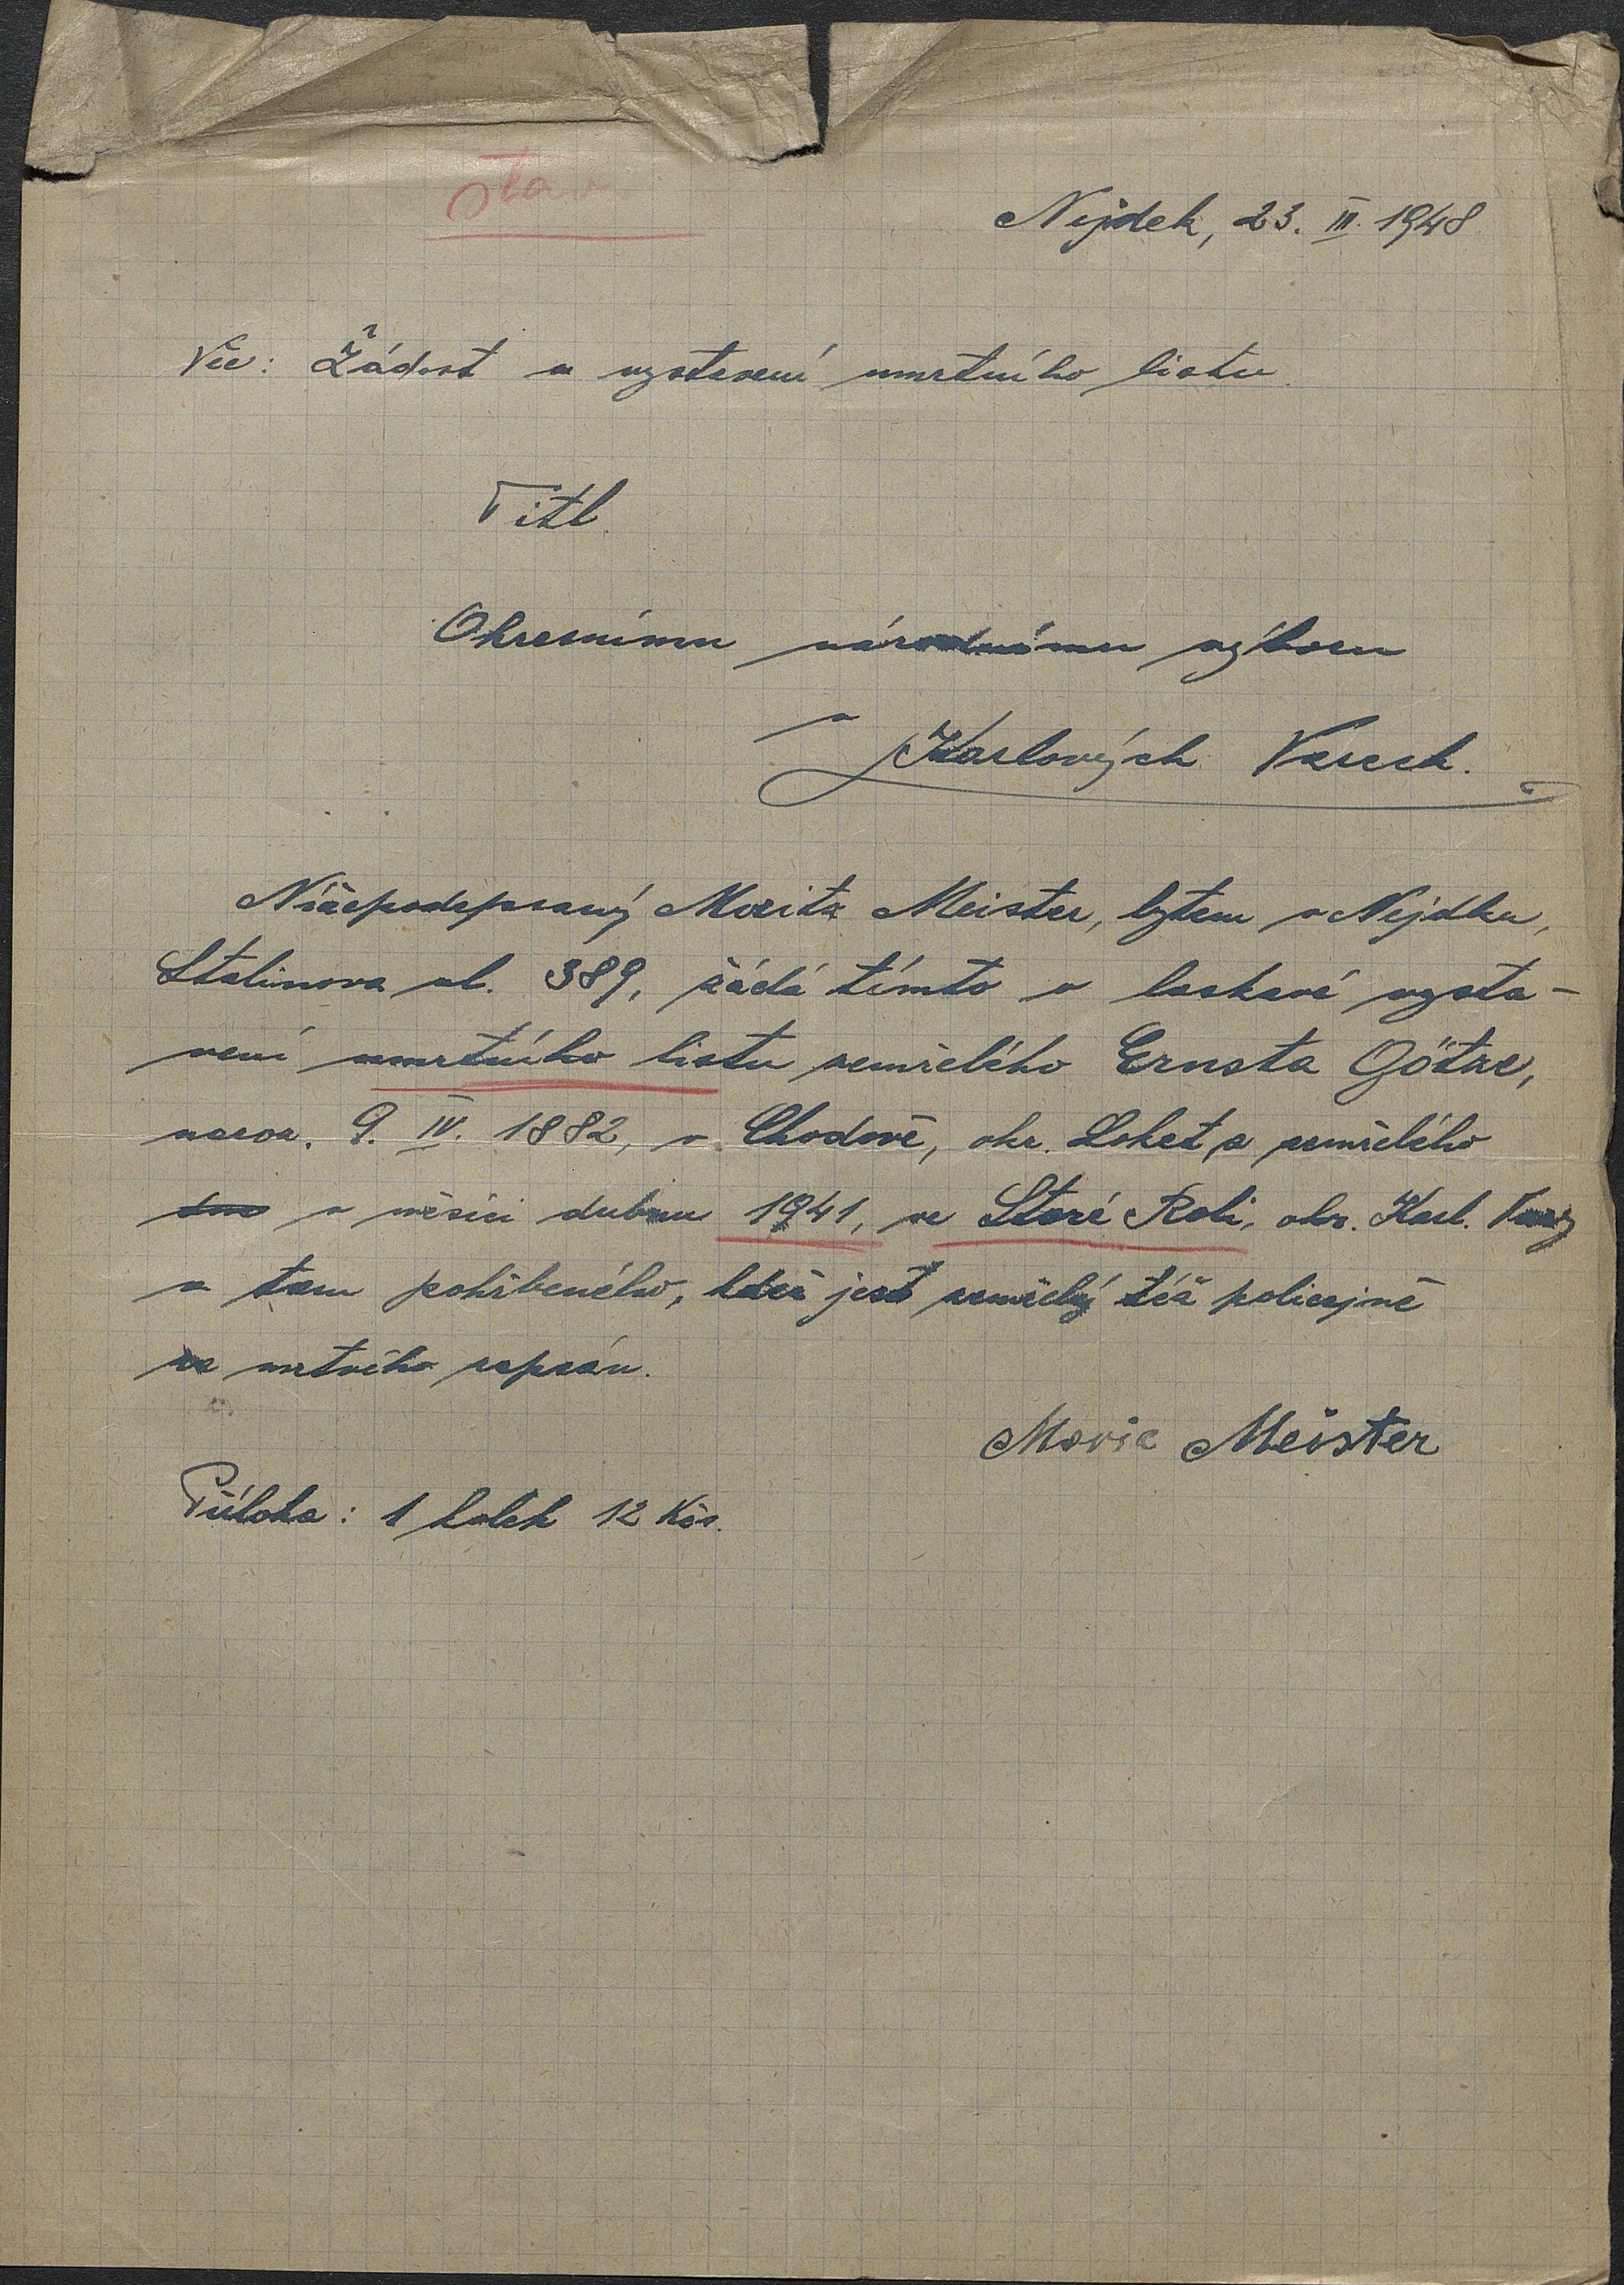 Nejdek, 23. III. 1948
Věc: Žádost o vystavení umrtního listu.
Titl.
Okresnímu národnímu výboru
v
Karlových Varech.
Nížepodepsaný Moritz Meister, bytem v Nejdku,
Stalinova ul. 389, žádá tímto o laskavé vysta-
vení umrtního listu zemřelého Ernsta Götze,
naroz. 9. IV. 1882, v Chodově, okr. Loket, a zemřelého
v měsíci dubnu 1941, ve Staré Roli, okr. Karl. Vary
a tam pohřbeného, kdež jest zemřelý též policejně
za mrtvého zapsán.
Moric Meister
Příloha: 1 kolek 12 Kčs.